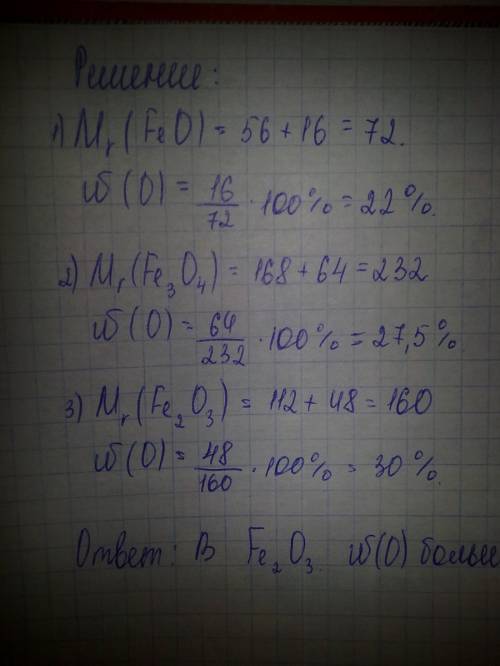 Решение:
1) Mr (FeO) = 56 + 16 = 72.
ω (O) = 16/72 · 100% = 22%.
2) Mr (Fe₃O₄) = 168 + 64 = 232
ω (O) = 64/232 · 100% = 27,5%.
3) Mr (Fe₂O₃) = 112 + 48 = 160
ω (O) = 48/160 · 100% = 30%.
Ответ: В Fe₂O₃. ω(O) больше